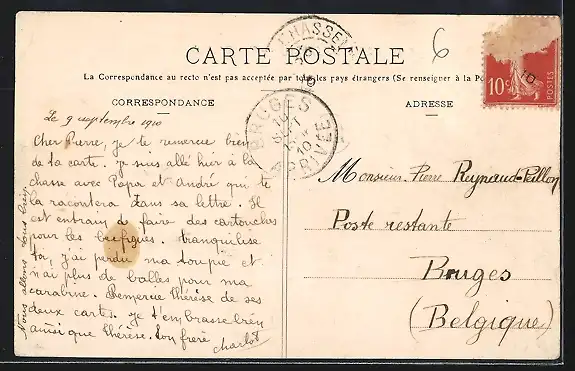 CARTE POSTALE
6
La Correspondance au recto n'est pas acceptée par tous les pays étrangers (Se renseigner à la
CORRESPONDANCE
ADRESSE
10c
POSTES
10
BRUGES
10
SEPT
10
ARRIVÉE
Le 9 septembre 1910
Cher Pierre, je te remercie bien
de ta carte. je suis allé hier à la
chasse avec Papa et André qui te
la racontera dans sa lettre. Il
est entrain de faire des cartouches
pour les becfigues. tranquilise
toi, j'ai perdu ma toupie et
n'ai plus de balles pour ma
carabine. Remercie thérèse de ses
deux cartes. je t'embrasse bien
ainsi que thérèse. ton frère
Charlot
Nous allons tous bien
Monsieur Pierre Reynaud-Paillon
Poste restante
Bruges
(Belgique)